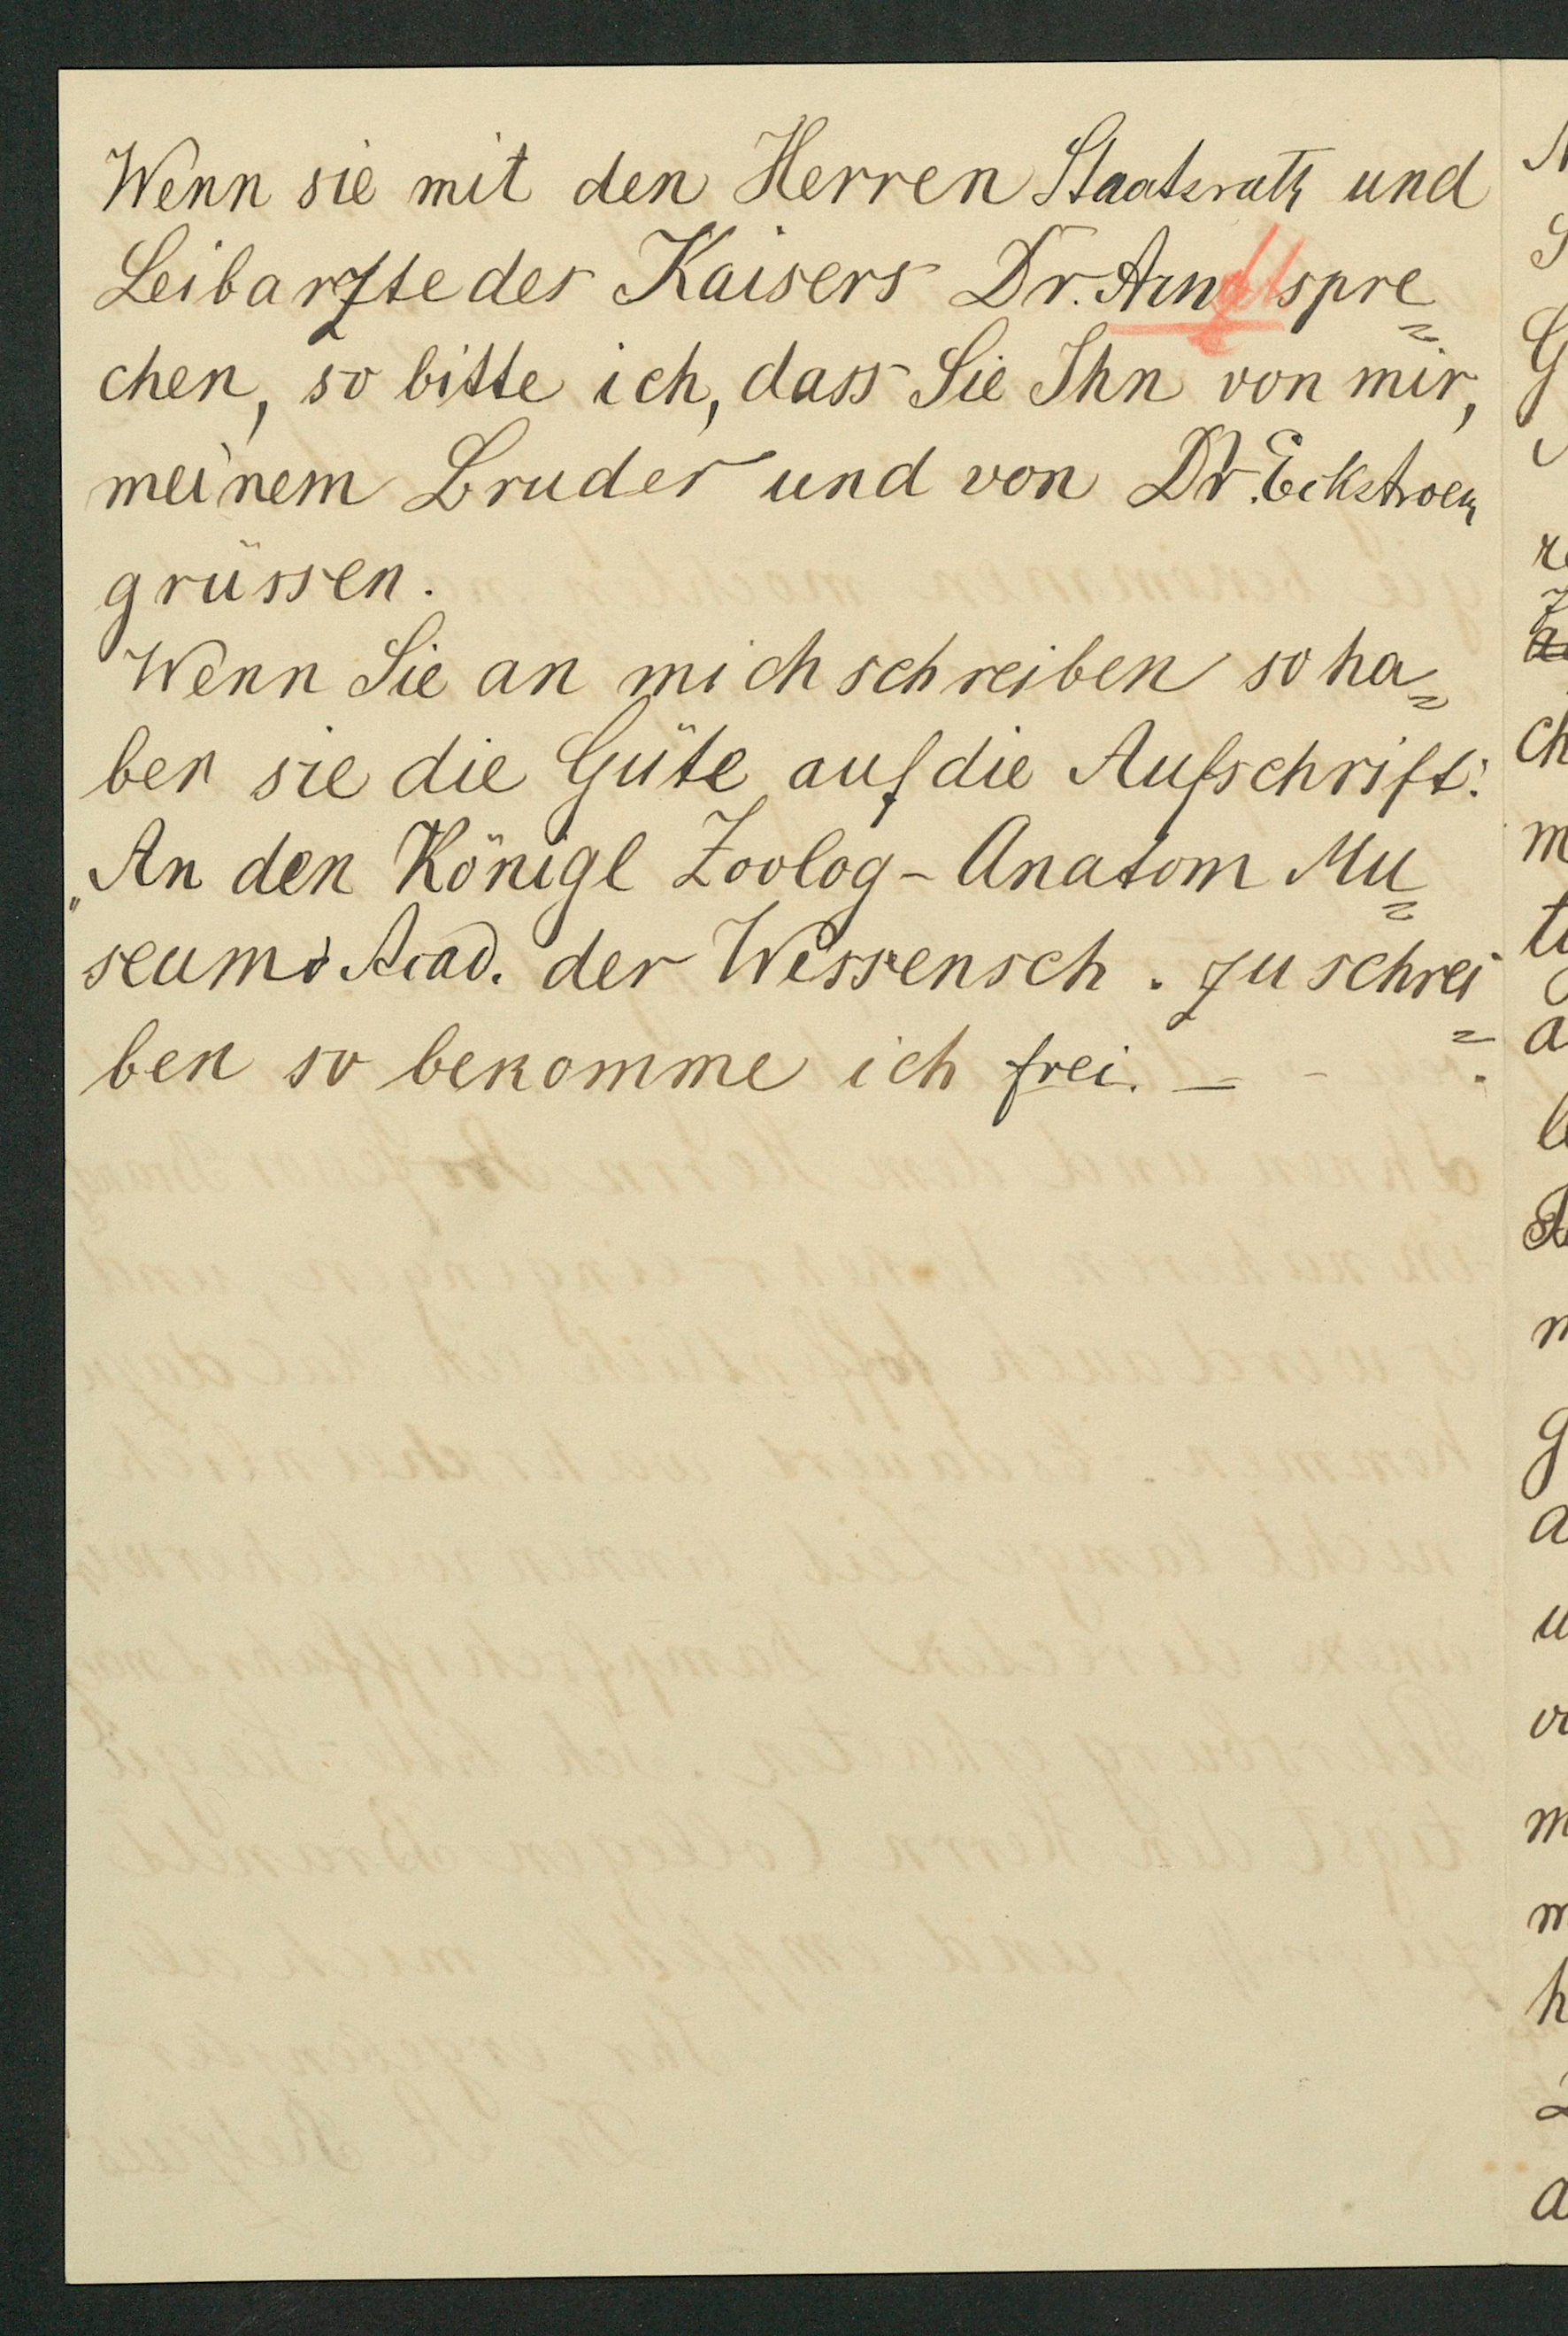 Wenn sie mit den Herren Staatsrath und
Leibarzte des Kaisers Dr. Arndt spre=
chen, so bitte ich, dass Sie Ihn von mir,
meinem Bruder und von Dr. Eckstroem
grüssen.
Wenn Sie an mich schreiben so ha=
ben sie die Güte auf die Aufschrift:
„An den Königl Zoolog-Anatom Mu=
seum d Acad. der Wissensch. zu schrei=
ben so bekomme ich frei. —